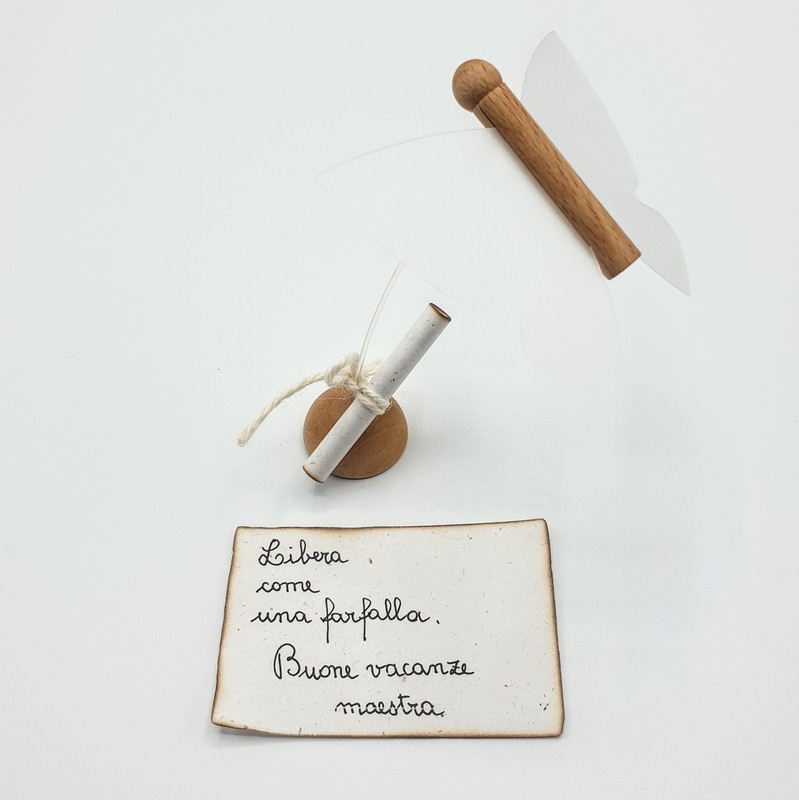 Libera
come
una farfalla.
Buone vacanze
maestra.